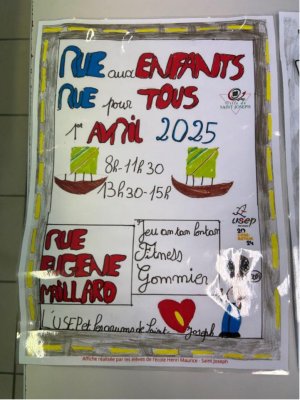 RUE aux ENFANTS
RUE pour TOUS
1er AVRIL 2025
Ville de
SAINT JOSEPH
8h-11h30
13h30-15h
usep
RUE
EUGENE
MAILLARD
Jeu an tan lontan
Fitness
Gommier
L'USEP et les communes de Saint Joseph
Affiche réalisée par les élèves de l'école Henri Maurice - Saint Joseph